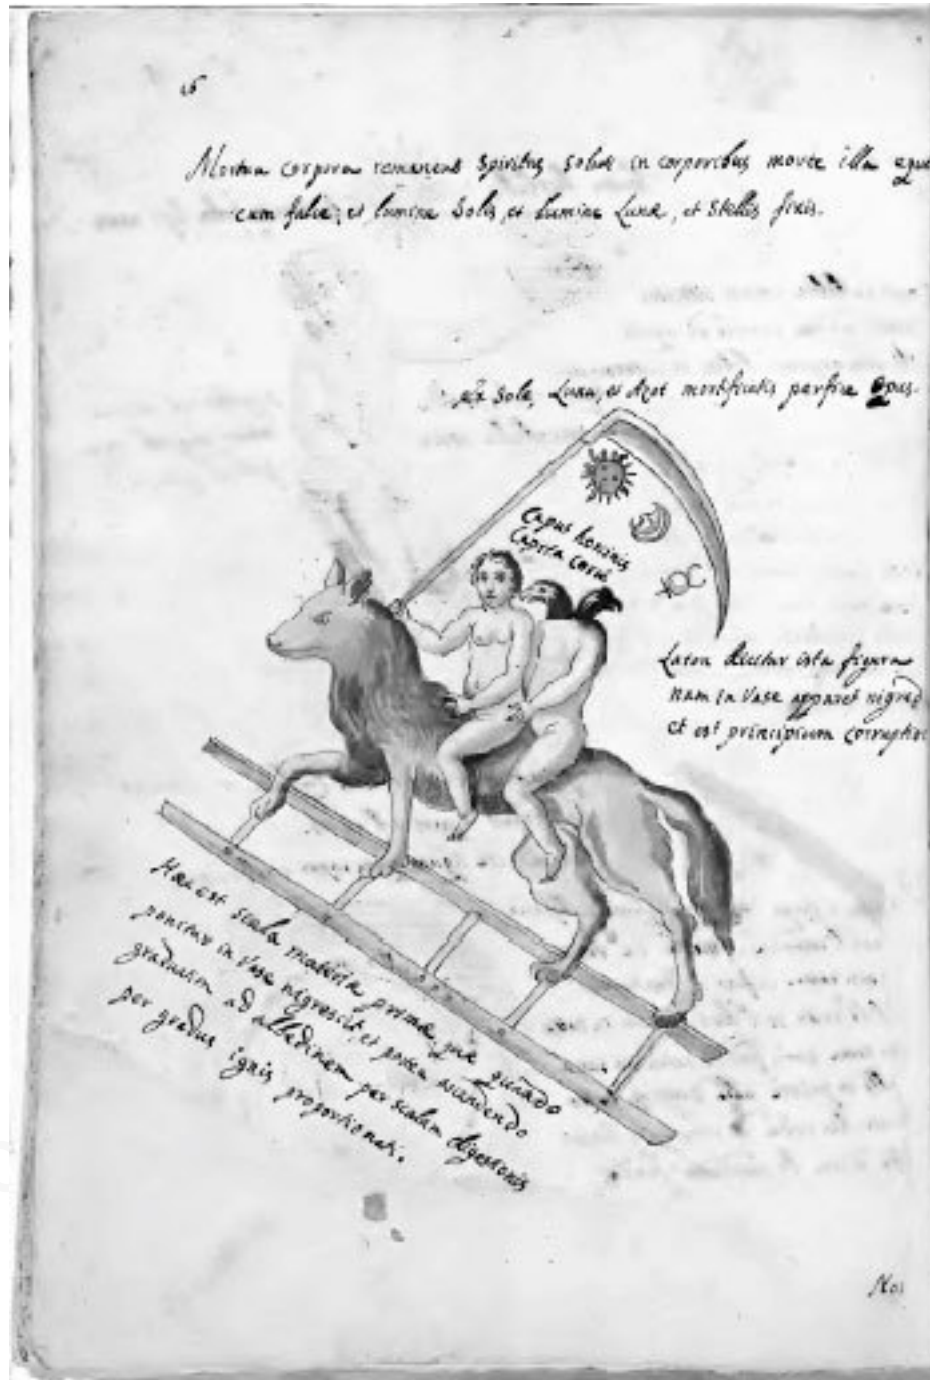 26
Mortua corpora remanent spiritus solus in corporibus morte illa aqua
cum falce, et lumine Solis, et lumine Lunæ, et stellis fixis.
ex Sole, Luna, et Azot mortificatis perfice opus.
Caput hominis
Capita corvi
Laton dicitur ista figura
nam in vase apparet nigred
et est principium corruptio
Hæc est scala materiæ primæ, quæ quãdo
ponitur in vase nigrescit, et postea ascendendo
gradatim ad albedinem per scalam digestionis
per gradus ignis proportionati.